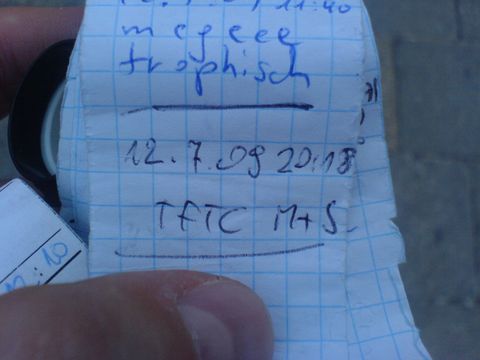 11:40
mcgeee
trophisch
12.7.09 20:18
TFTC M+S